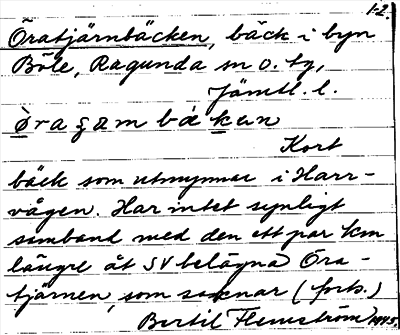 1-2.
Öratjärnbäcken, bäck i byn
Böle, Ragunda sn o. tg,
Jämtl. l.
Kort
bäck som utmynnar i Harr-
vågen. Har intet synligt
samband med den ett par km
längre åt SV belägna Öra-
tjärnen, som saknar (forts.)
Bertil Flemström 1945